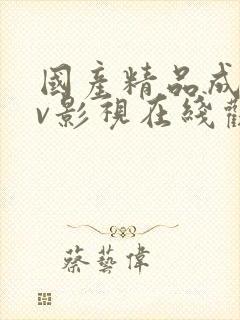 國產精品成
v影視在綫觀
蔡藝偉